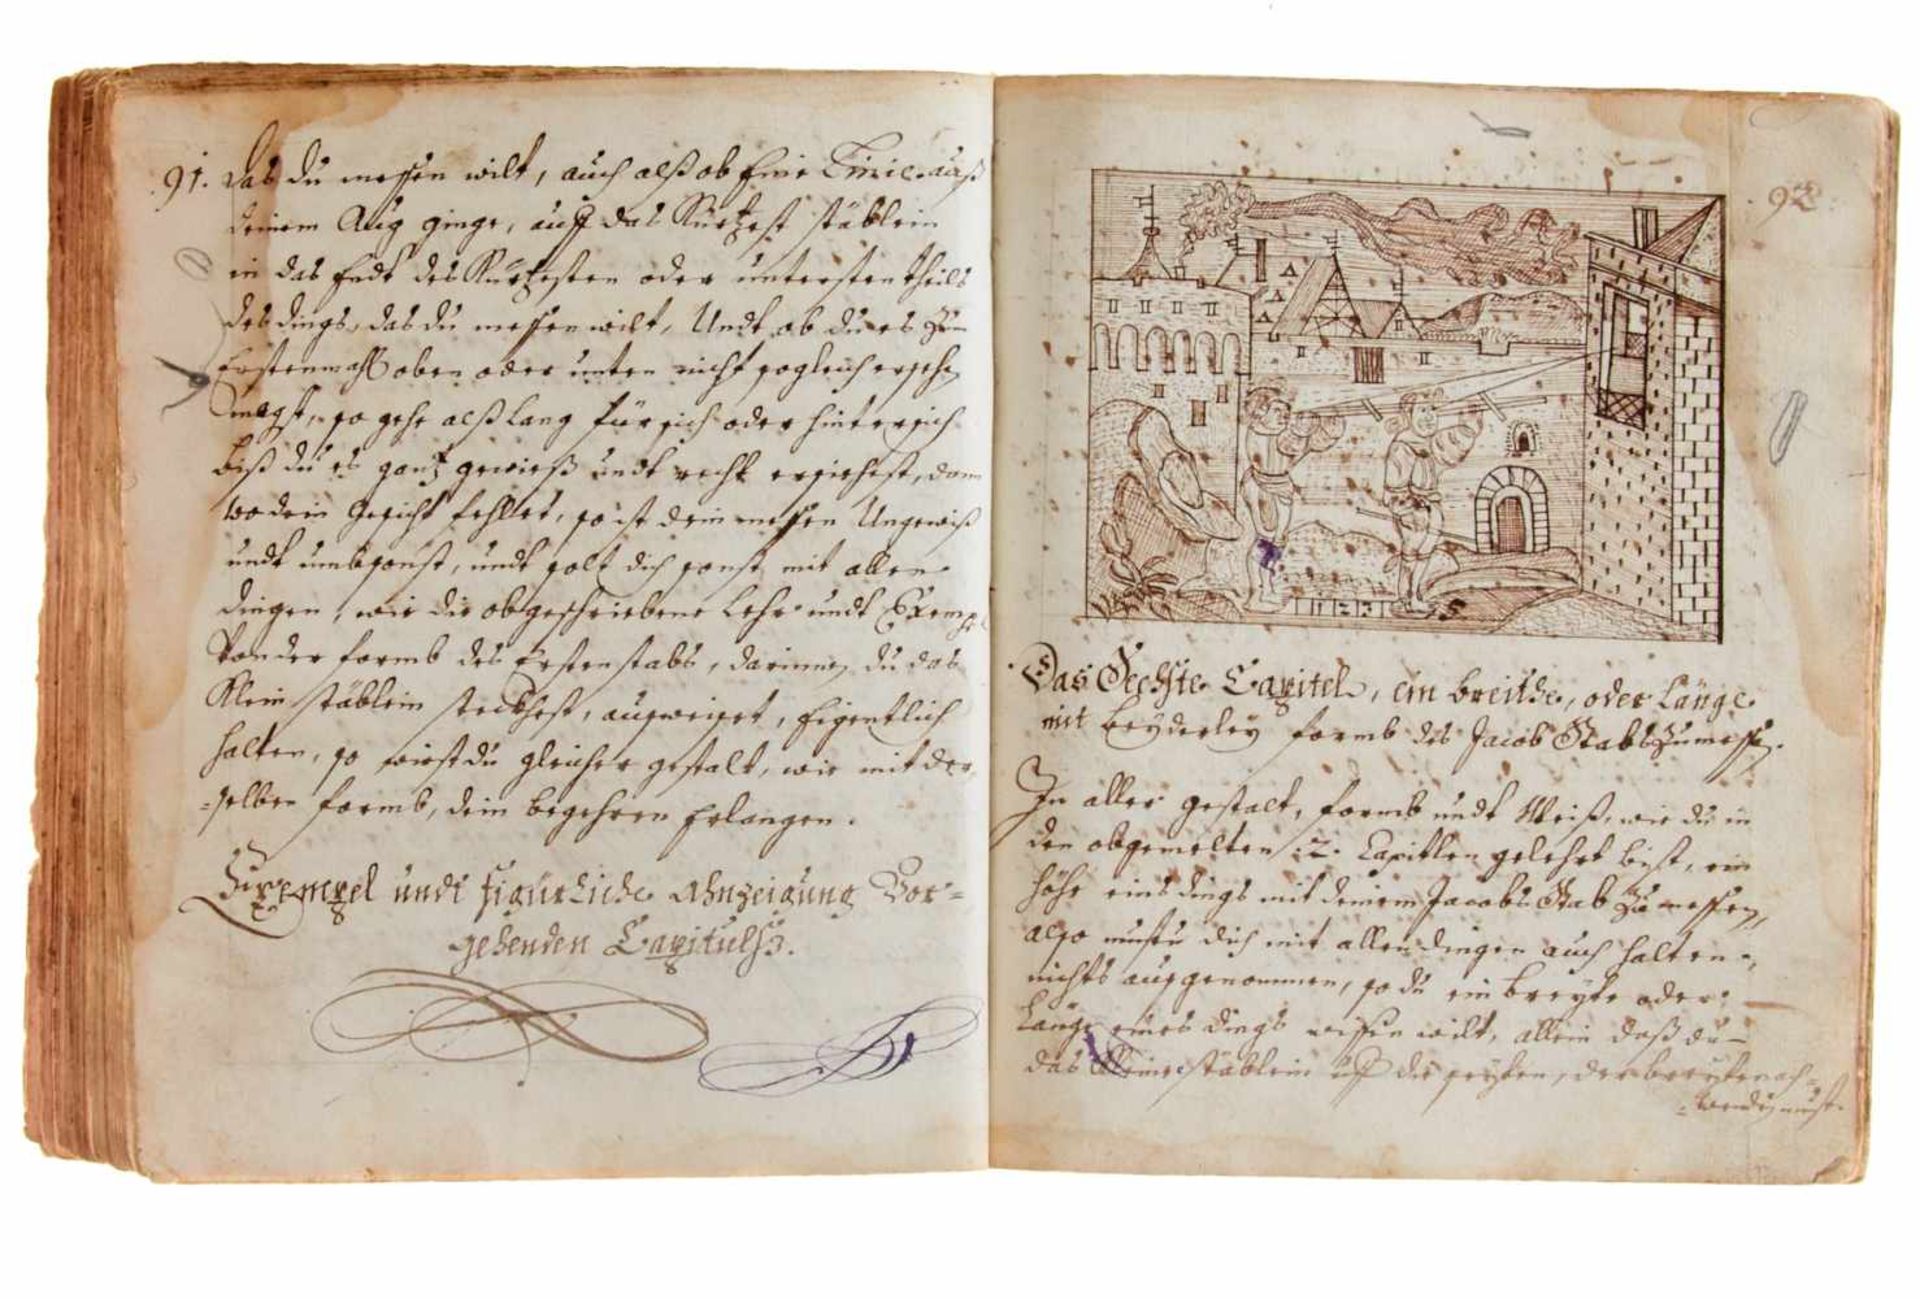 91. das du messen wilt, auch alß ob Eine Linie auß
deinem Aug ginge, auff das Kürtzest stäblein
in das Endt des Kürtzesten oder untersten theils
des dings, das du messen wilt, Undt ob du es zum
Erstenmahl oben oder unten nicht sogleich ersehen
magst, so gehe alß lang für sich oder hintersich
biß du es gantz gewieß undt recht ersiehest, dann
wo dein Gesicht fehllet, so ist dein messen Ungewiß
undt umbsonst, undt solt dich sonst mit allen
dingen, wie die obgeschriebene Lehr undt Exempel
Von der formb des Ersten stabs, darinnen du das
Klein stäblein steckhest, ausweiset, Eigentlich
halten, so wirst du gleicher gestalt, wie mit der
=selben formb, dein begehren Erlangen.
Exempel undt figürliche Ahnzeigung Vor=
gehenden Capitulß.
92.
1 2 3
Das Sechste Capitel, ein breithe, oder Länge
mit beyderley formb des Jacob Stabs zumessen.
In aller gestalt, formb undt Weiß, wie du in
den obgemelten .2. Capitlen gelehrt bist, ein
höhe eines dings mit deinem Jacobs Stab zu messen,
also mustu dich mit allen dingen auch halten,
nichts ausgenommen, so du ein breyte oder
Länge eines dings wissen wilt, allein daß du
das Kleine stäblein uff die seyten, der breyte nach
=wenden must